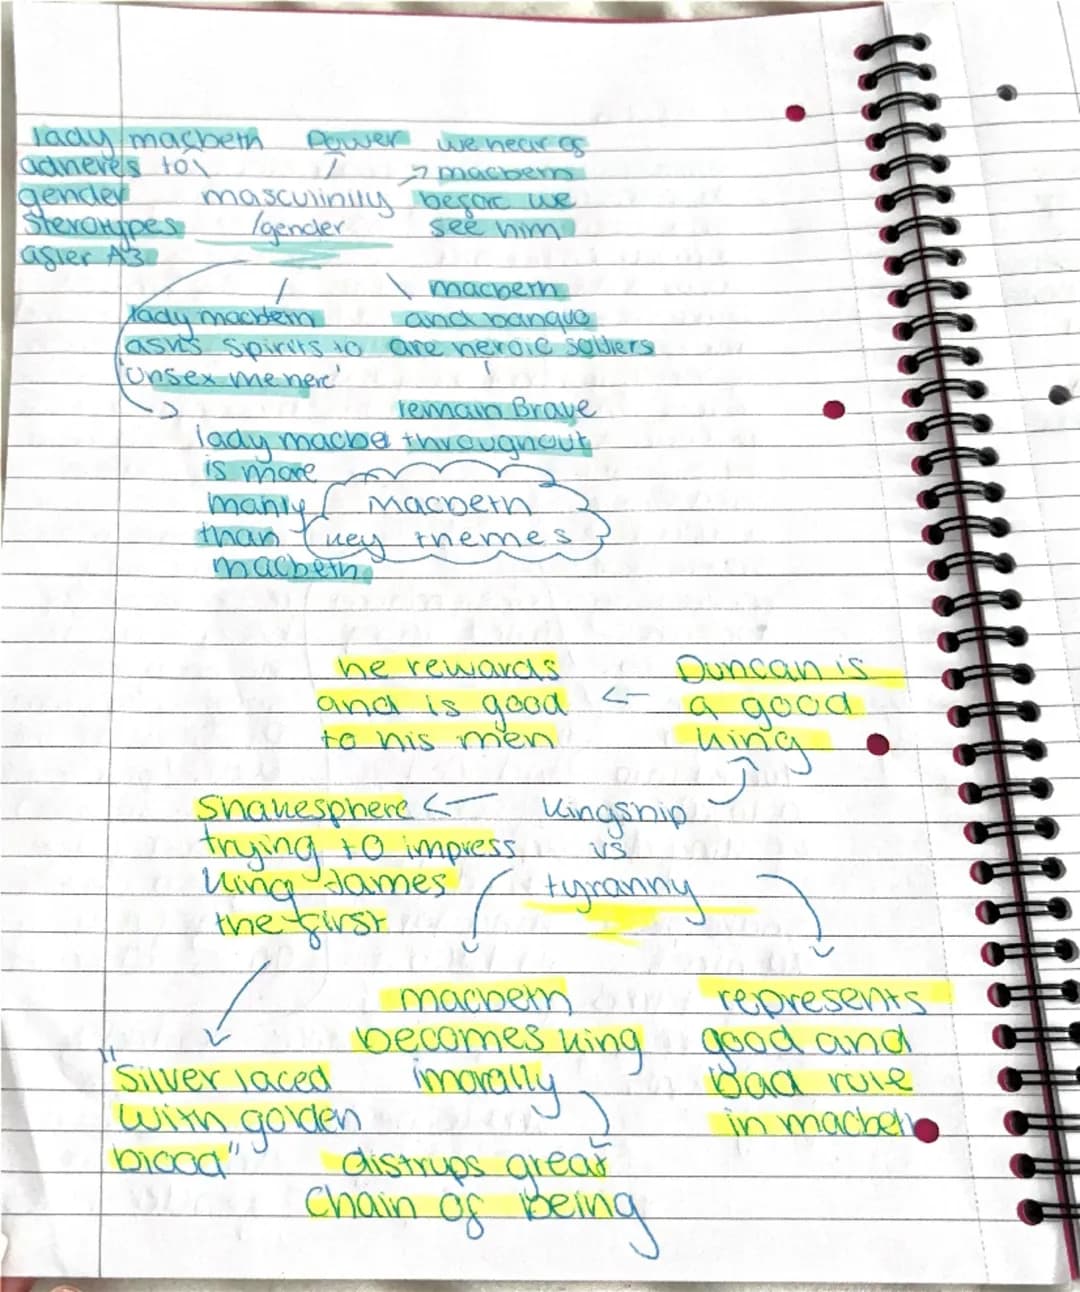 lady macbeth
adheres to
gender
sterotypes
after A3
Power
masculinity
/gender
we hear of
macbeth
before we
see him
lady macbeth
asks spirits to
'unsex me here'
macbeth
and banquo
are heroic soliers
remain Brave
throughout
lady macbe
is more
manly
than
macbeth
Macbeth
key themes
he rewards
and is good
to his men
Duncan is
a good
king
Kingship
vs
tyranny
Shakesphere
trying to impress
King James
the first
"Silver laced
with golden
blood"
macbeth
becomes king
imorally
distrups great
Chain of Being
represents
good and
bad rule
in macbeth